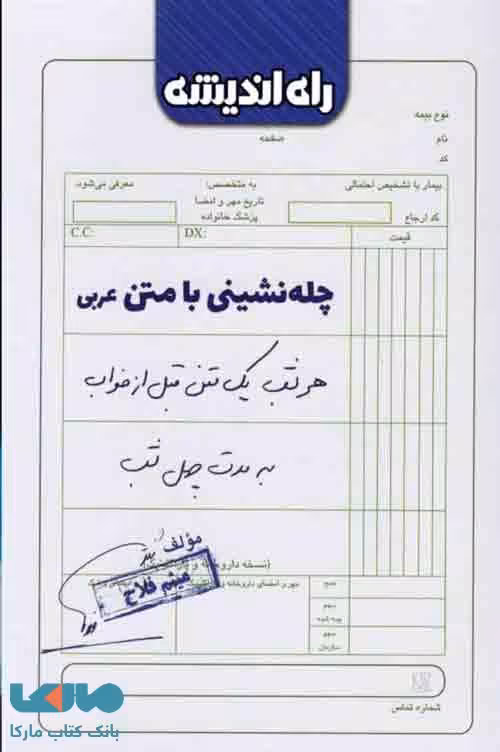 راه اندیشه
نوع بیمه
نام
صفحه
کد
بیمار با تشخیص احتمالی
به متخصص:
معرفی می‌شود.
کد ارجاع
تاریخ مهر و امضا
پزشک خانواده
قیمت
DX:
C.C:
چله‌نشینی با متن عربی
هر شب یک متن قبل از خواب
به مدت چهل شب
مؤلف
میثم فلاح
(نسخه داروخانه و
مهر و امضای داروخانه و
جمع
سهم
بیمه شده
سهم
سازمان
شماره تماس
مارکا
بانک کتاب مارکا